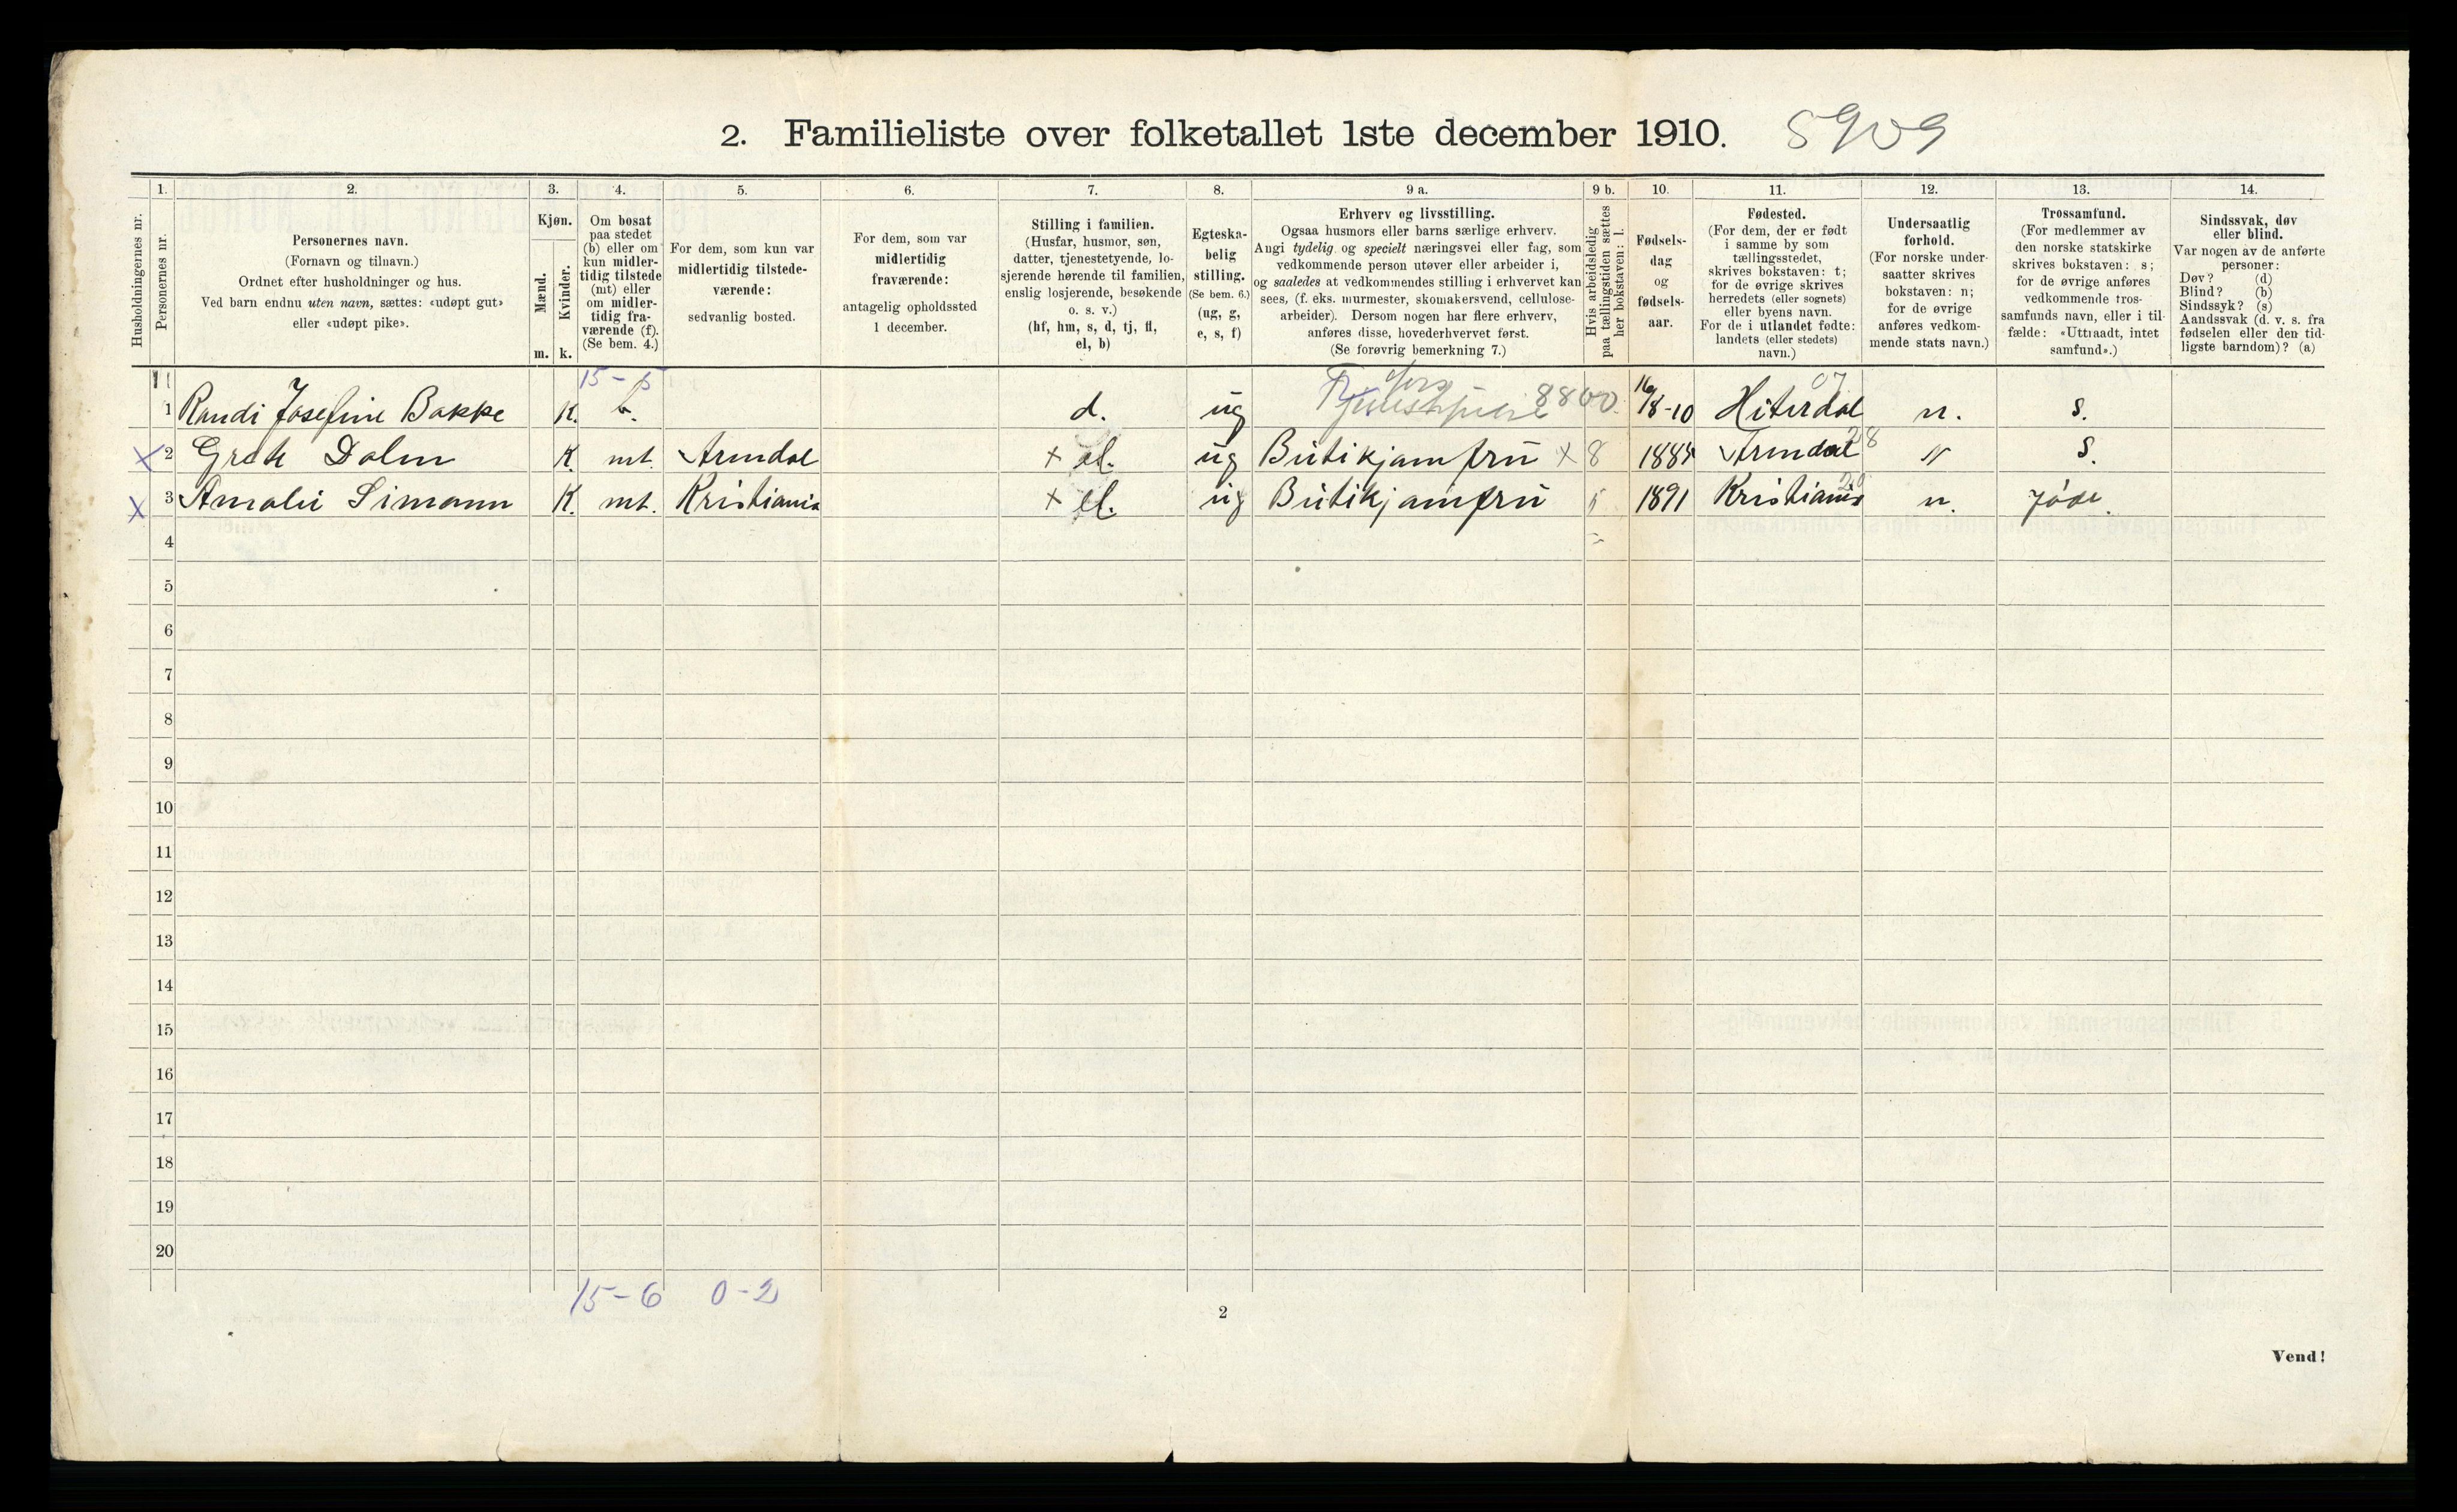 2. Familieliste over folketallet 1ste december 1910. 5909
1. 2. 3. 4. 5. 6. 7. 8. 9 a. 9 b. 10. 11. 12. 13. 14.
Husholdningernes nr.
Personernes nr.
Personernes navn.
(Fornavn og tilnavn.)
Ordnet efter husholdninger og hus.
Ved barn endnu uten navn, sættes: «udøpt gut»
eller «udøpt pike».
Kjøn.
Mænd.
Kvinder.
m. k.
Om bosat
paa stedet
(b) eller om
kun midler-
tidig tilstede
(mt) eller
om midler-
tidig fra-
værende (f).
(Se bem. 4.)
For dem, som kun var
midlertidig tilstede-
værende:
sedvanlig bosted.
For dem, som var
midlertidig
fraværende:
antagelig opholdssted
1 december.
Stilling i familien.
(Husfar, husmor, søn,
datter, tjenestetyende, lo-
sjerende hørende til familien,
enslig losjerende, besøkende
o. s. v.)
(hf, hm, s, d, tj, fl,
el, b)
Egteska-
belig
stilling.
(Se bem. 6.)
(ug, g,
e, s, f)
Erhverv og livsstilling.
Ogsaa husmors eller barns særlige erhverv.
Angi tydelig og specielt næringsvei eller fag, som
vedkommende person utøver eller arbeider i,
og saaledes at vedkommendes stilling i erhvervet kan
sees, (f. eks. murmester, skomakersvend, cellulose-
arbeider). Dersom nogen har flere erhverv,
anføres disse, hovederhvervet først.
(Se forøvrig bemerkning 7.)
Hvis arbeidsledig
paa tællingstiden sættes
her bokstaven: l.
Fødsels-
dag
og
fødsels-
aar.
Fødested.
(For dem, der er født
i samme by som
tællingsstedet,
skrives bokstaven: t;
for de øvrige skrives
herredets (eller sognets)
eller byens navn.
For de i utlandet fødte:
landets (eller stedets)
navn.)
Undersaatlig
forhold.
(For norske under-
saatter skrives
bokstaven: n;
for de øvrige
anføres vedkom-
mende stats navn.)
Trossamfund.
(For medlemmer av
den norske statskirke
skrives bokstaven: s;
for de øvrige anføres
vedkommende tros-
samfunds navn, eller i til-
fælde: «Uttraadt, intet
samfund».)
Sindssvak, døv
eller blind.
Var nogen av de anførte
personer:
Døv? (d)
Blind? (b)
Sindssyk? (s)
Aandssvak (d. v. s. fra
fødselen eller den tid-
ligste barndom)? (a)
15-5
1 Randi Josefine Bakke K. b. d. ug 8800 16/8-10 Hiterdal 07 n. s.
X 2 Grete Dalm K. mt. Arendal + el. ug Butikjomfru X 8 1884 Arendal 28 " S.
X 3 Amalie Simann K. mt. Kristiania + el. ug Butikjomfru 5 1891 Kristiania 29 n. jøde.
4
5
6
7
8
9
10
11
12
13
14
15
16
17
18
19
20
15-6 0-2
2
Vend!